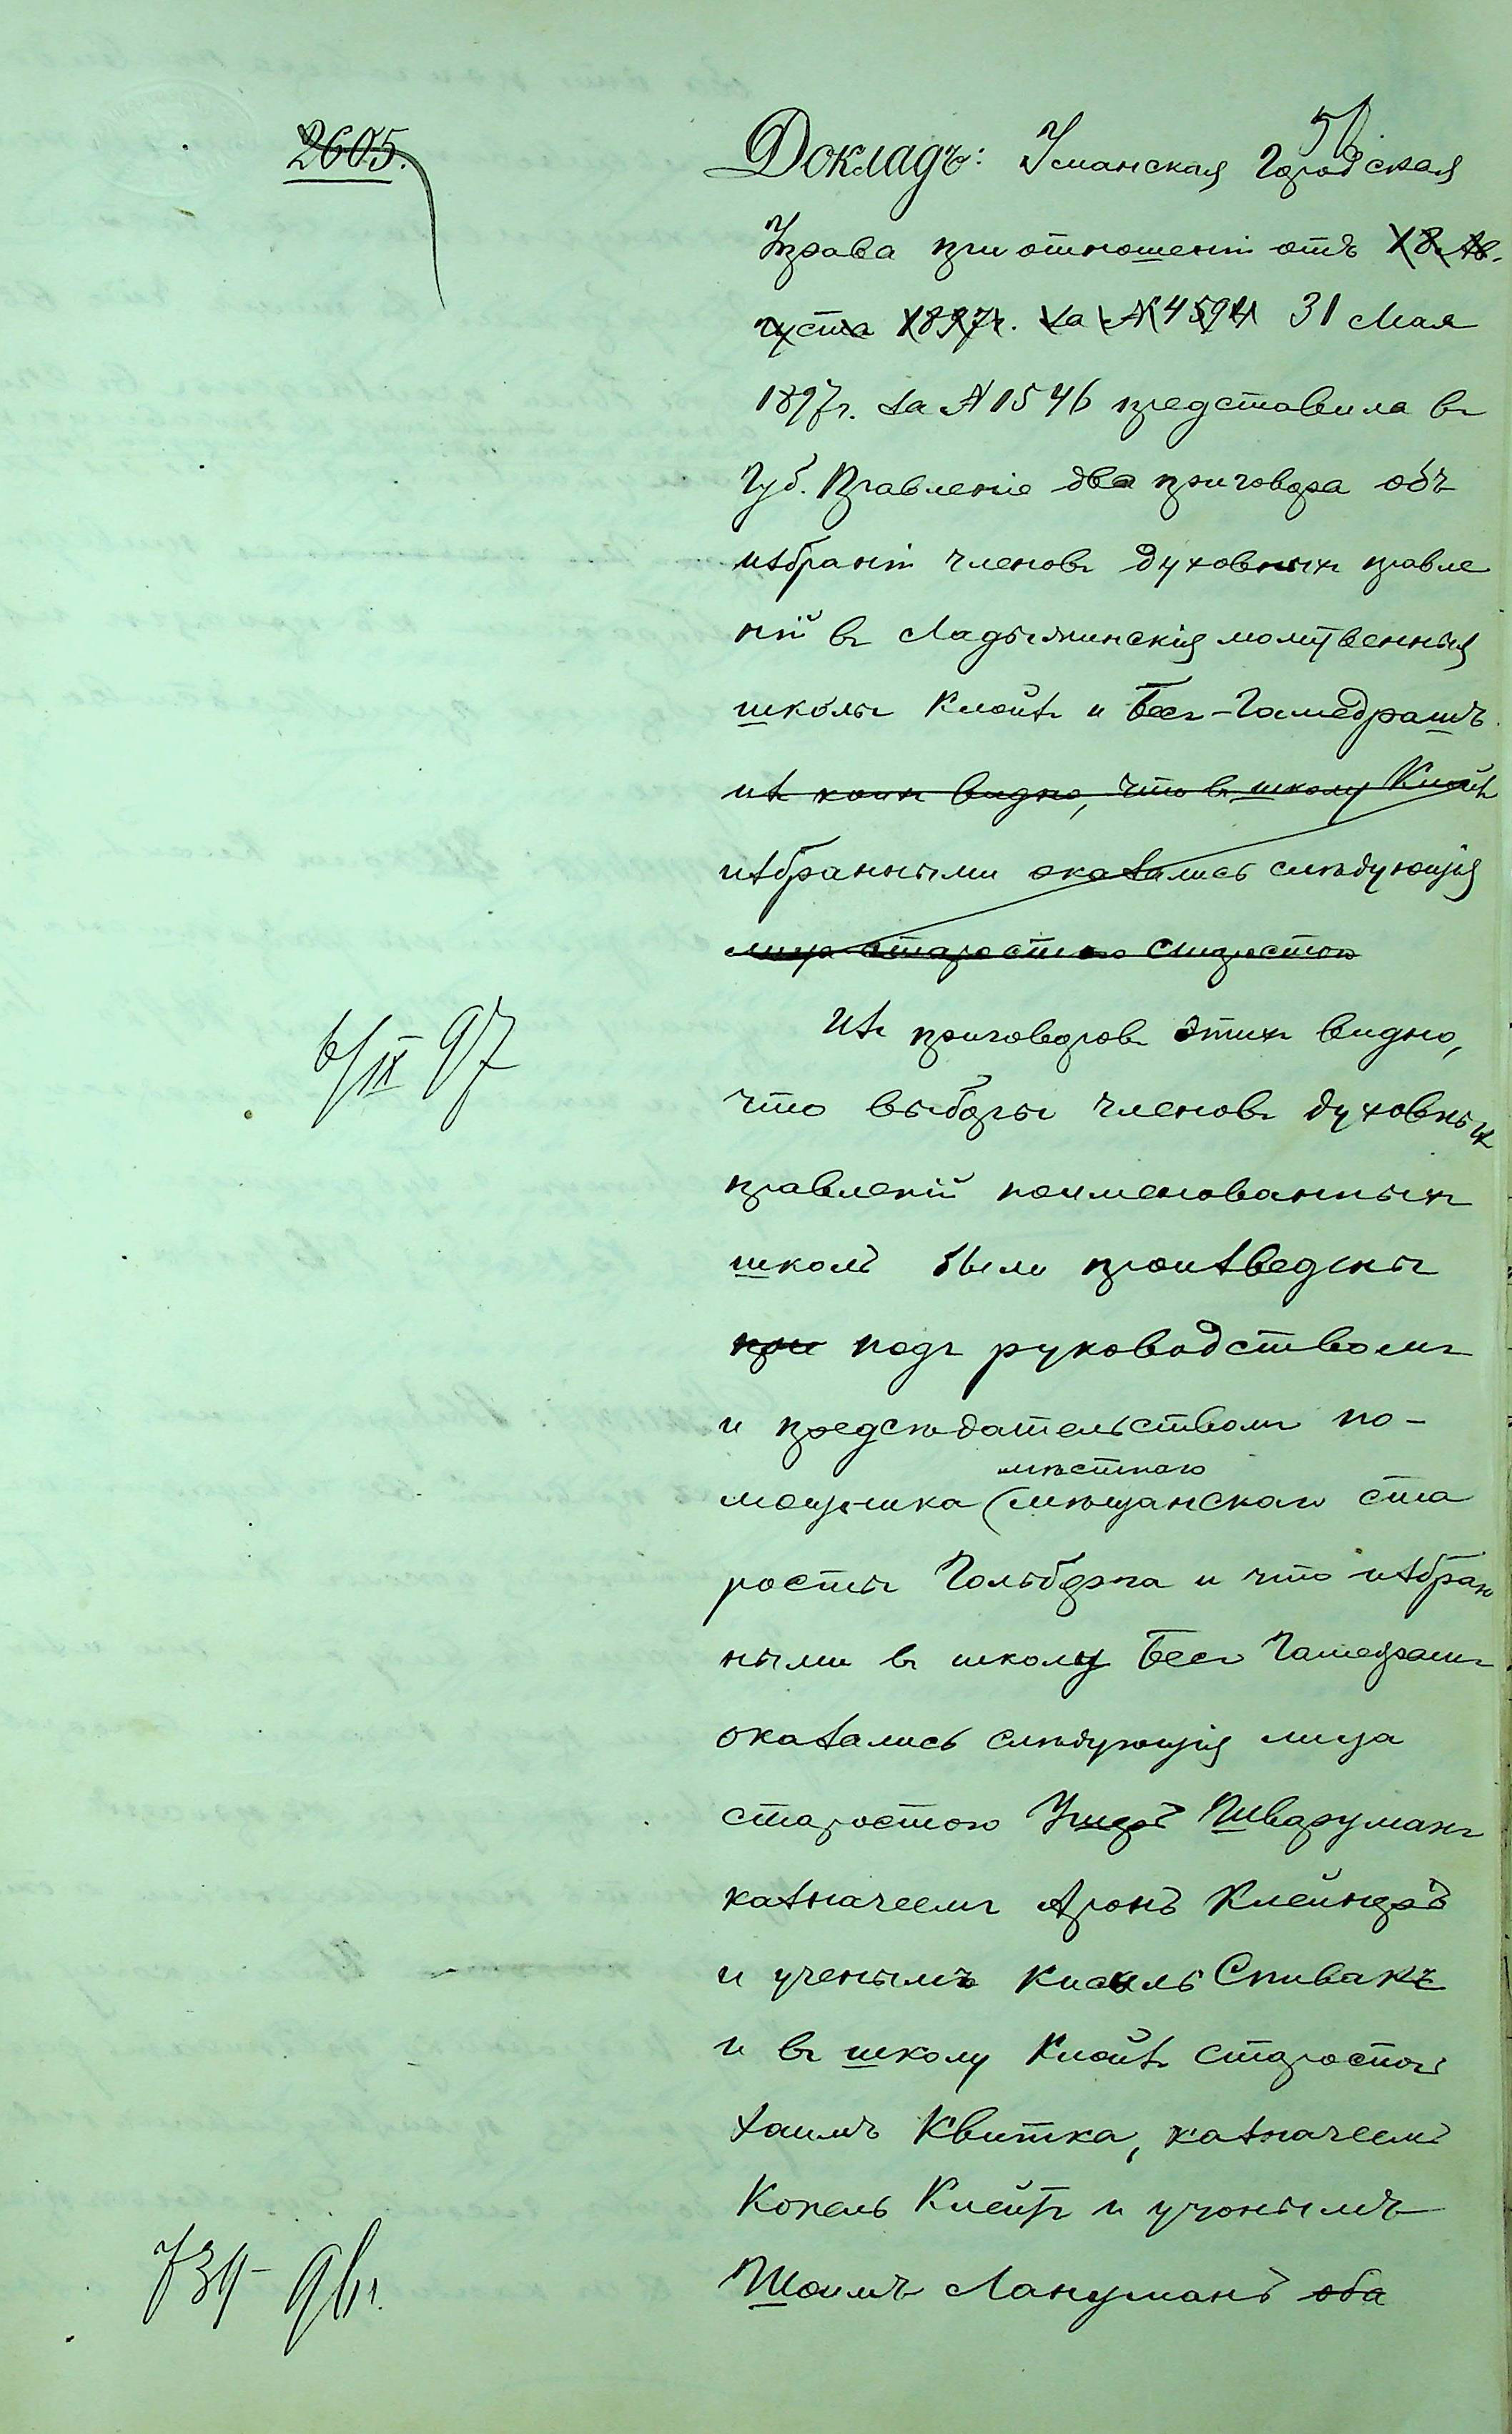 2605.
Докладъ: Уманская Городская
Управа при отношеніи отъ 18 Ав-
густа 1897г. за № 4594 31 Мая
1897г. за № 1546 представила въ
Губ. Правленіе два приговора объ
избраніи членовъ духовныхъ правле
ній въ Ладыжинскія молитвенныя
школы Клойзъ и Бесъ-Гамедрашъ
изъ коихъ видно, что въ школу Клойзъ
избранными оказались слѣдующія
лица старостою старостою
Изъ приговоровъ этихъ видно,
6/IX 97
что выборы членовъ духовныхъ
правленій поименованныхъ
школъ были произведены
при подъ руководствомъ
и предсѣдательствомъ по-
мѣстнаго
мощника мѣщанскаго ста
росты Гольберга и что избран
ными въ школу Бесъ Гамедрашъ
оказались слѣдующія лица
старостою Ушеръ Шварцманъ
казначеемъ Аронъ Клейнеръ
и ученымъ Кисиль Спивакъ
и въ школу Клойзъ старостою
Хаимъ Квитка, казначеемъ
Копель Клейнъ и ученымъ
734 96г.
Шоимъ Ланцманъ оба